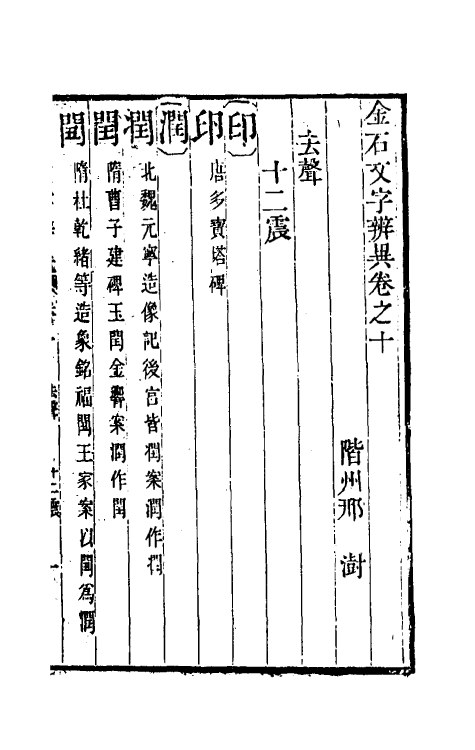 金石文字辨異卷之十
階州邢　澍
去聲
十二震
印
印　唐多寶塔碑
潤
㵎　北魏元寧造像記後宫皆潤案潤作㵎
閏　隋曹子建碑玉閏金聲案潤作閏
閠　隋杜乾緒等造象銘福閠王家案以閠爲潤